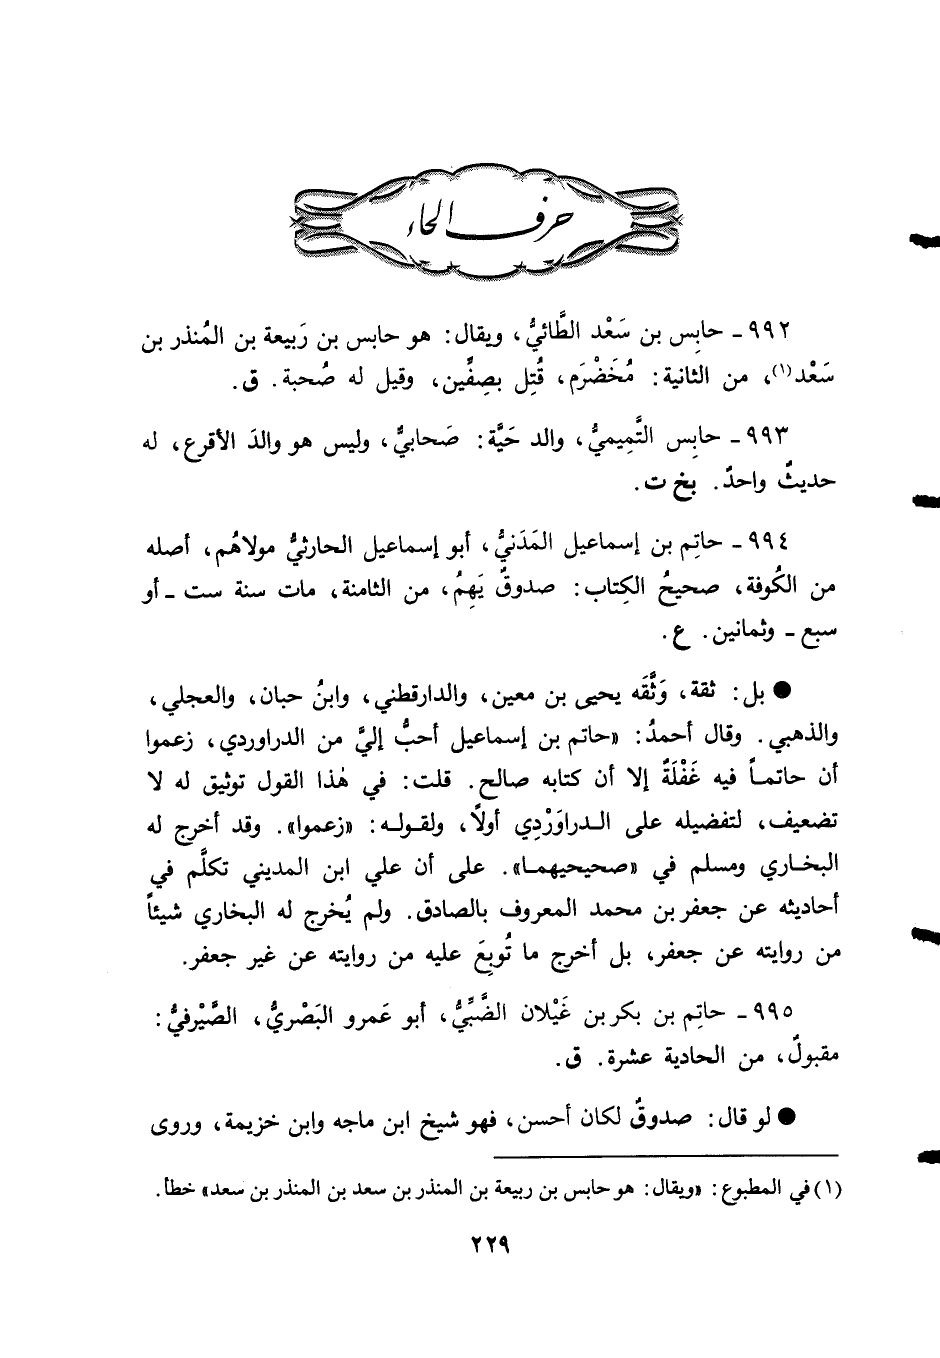 حرف الحاء
٩٩٢ - حابِس بن سَعْد الطَّائيُّ، ويقال: هو حابس بن رَبيعة بن المُنذر بن
سَعْد(١)، من الثانية: مُخَضْرَم، قُتِل بصِفِّين، وقيل له صُحبة. ق.
٩٩٣ - حابِس التَّمِيميُّ، والد حَيَّة: صَحابيٌّ، وليس هو والدَ الأقرع، له
حديثٌ واحدٌ. بخ ت.
٩٩٤ - حاتِم بن إسماعيل المَدَنيُّ، أبو إسماعيل الحارثيُّ مولاهُم، أصله
من الكُوفة، صحيحُ الكِتاب: صدوقٌ يَهِمُ، من الثامنة، مات سنة ست - أو
سبع - وثمانين. ع.
● بل: ثقة، وَثَّقَه يحيى بن معين، والدارقطني، وابنُ حبان، والعجلي،
والذهبي. وقال أحمدُ: «حاتم بن إسماعيل أحبُّ إليَّ من الدراوردي، زعموا
أن حاتمـاً فيه غَفْلَةٌ إلا أن كتابه صالح. قلت: في هٰذا القول توثيق له لا
تضعيف، لتفضيله على الـدراوَرْدِي أولاً، ولقـولـه: «زعموا». وقد أخرج له
البخـاري ومسلم في «صحيحيهمـا». على أن علي ابن المديني تكلَّم في
أحاديثه عن جعفر بن محمد المعروف بالصادق. ولم يُخرج له البخاري شيئاً
من روايته عن جعفر، بل أخرج ما تُوبِعَ عليه من روايته عن غير جعفر.
٩٩٥ - حاتِم بن بكر بن غَيْلان الضَّبِّيُّ، أبو عَمرو البَصْريُّ، الصَّيْرفيُّ:
مقبولٌ، من الحادية عشرة. ق.
● لو قال: صدوقٌ لكان أحسن، فهو شيخ ابن ماجه وابن خزيمة، وروى
(١) في المطبوع: «ويقال: هو حابس بن ربيعة بن المنذر بن سعد بن المنذر بن سعد» خطأ.
٢٢٩